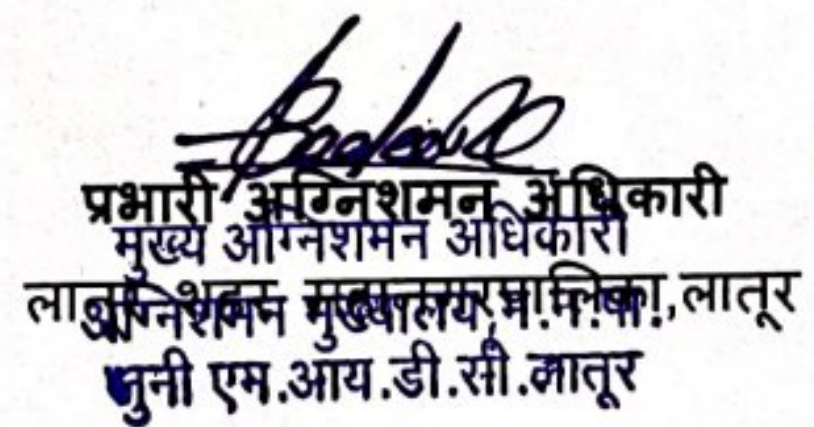 प्रभारी अग्निशमन अधिकारी
मुख्य अग्निशमन अधिकारी
लातूर शहर महानगरपालिका,लातूर
अग्निशमन मुख्यालय,म.न.पा.
जुनी एम.आय.डी.सी.लातूर